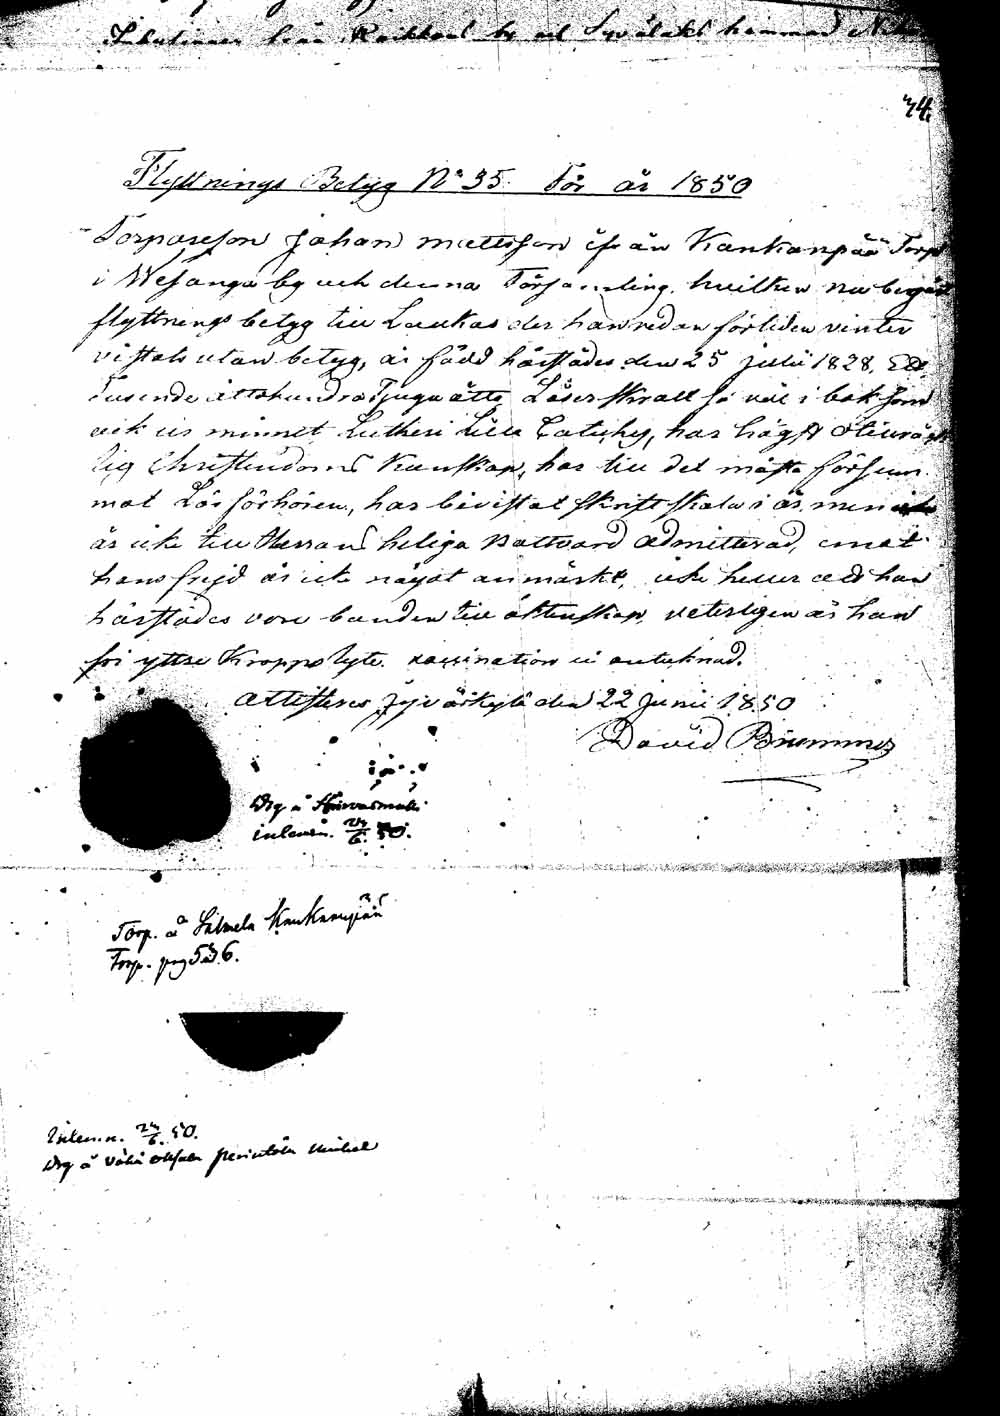 by och Syvälaks hemman
74.
Flyttnings Betyg No 35. För år 1850
Torpareson Johan Mattsson ifrån Kankanpää Torp
i Wesanga by och denna Församling, hvilken nu begärt
flyttnings betyg till Laukas der han redan förliden vinter
vistats utan betyg, är född härstädes den 25 Julii 1828, Ett
Tusende Åttahundra Tjugu åtta Läser skralt så väl i bok som
ock ur minnet Lutheri Lilla Catichs, har högst otillräck
lig Christendoms kunskap, har till det mästa försum
mat Läsförhören, har bevistat skriftskola i år men
är icke till Herrans heliga nattvard admitterad, emot
hans frejd är icke något anmärkt, icke heller att han
härstädes vore bunden till äktenskap, veterligen är han
fri yttre Kropps lyte. vaccination ei antecknad.
Attesteras Jyväskylä den 22 Junii 1850
David Brummer
Drg å
inlemn. 24/6. 50.
Torp. å Salmela Kankanpää
Torp. pag 536.
Inlemn. 24/6. 50.
Drg å